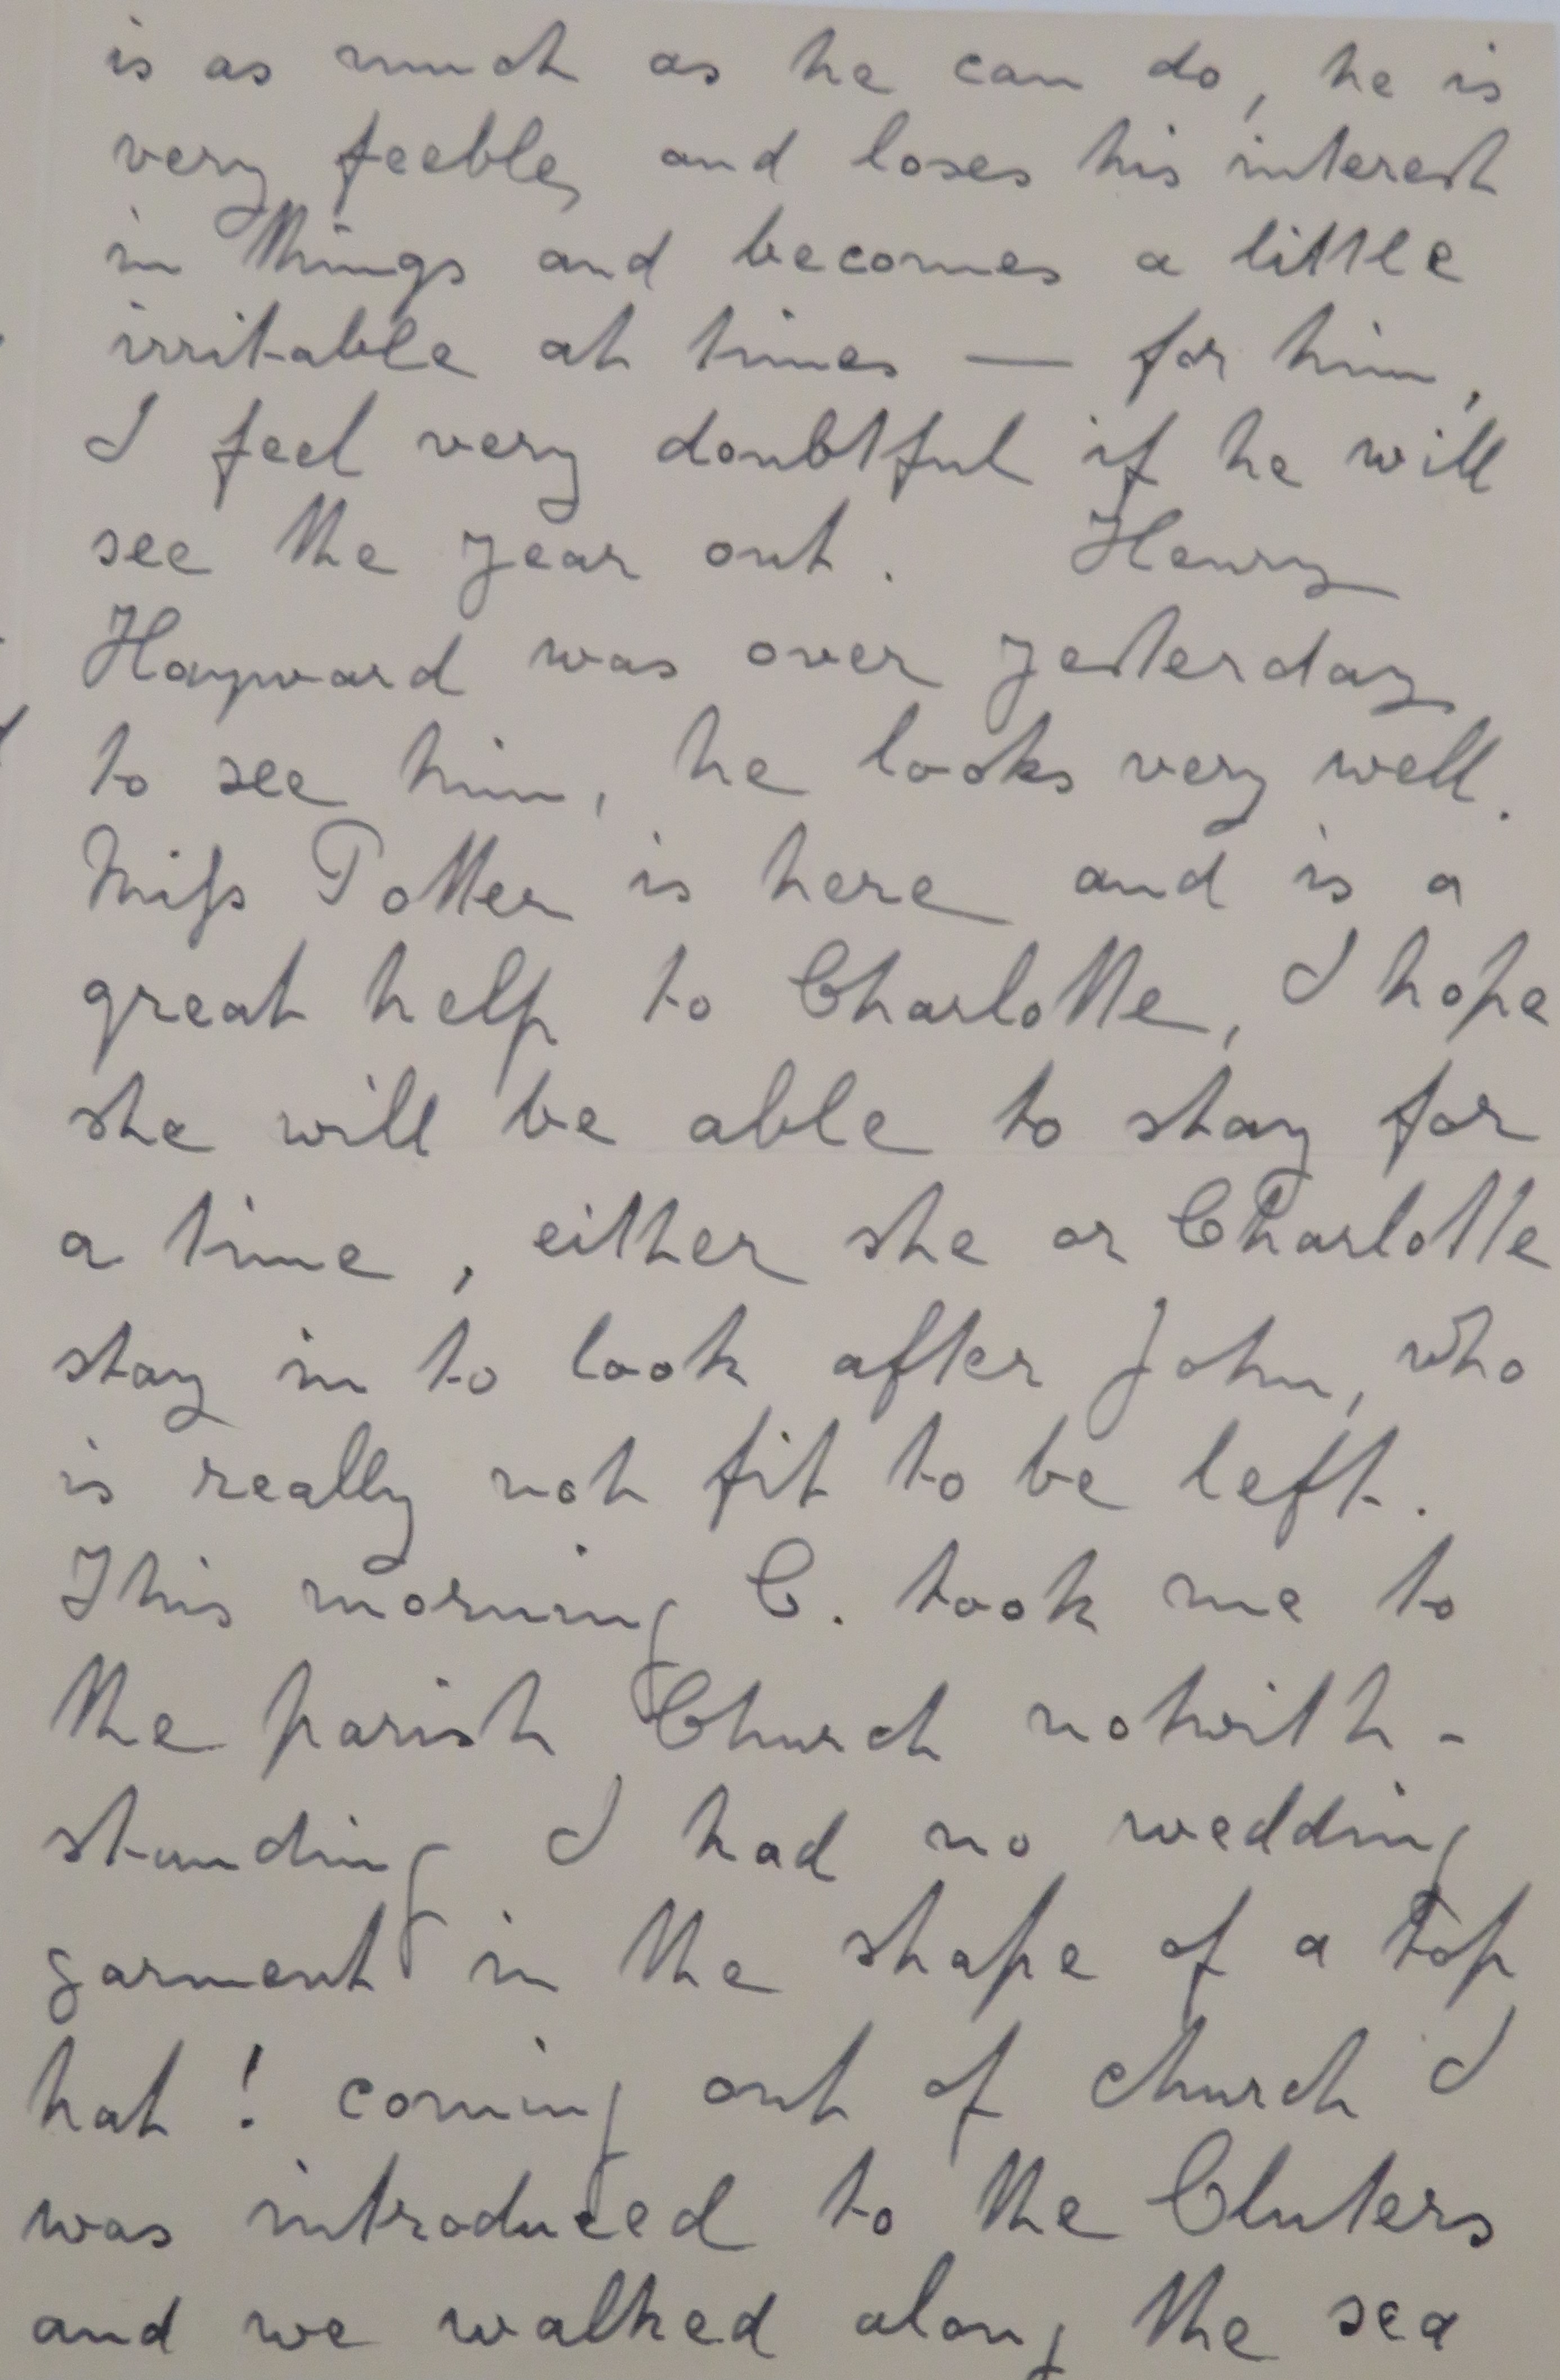 is as much as he can do, he is
very feeble, and loses his interest
in things and becomes a little
irritable at times — for him,
I feel very doubtful if he will
see the year out. Henry
Hayward was over yesterday
to see him, he looks very well.
Miss Potter is here and is a
great help to Charlotte, I hope
she will be able to stay for
a time, either she or Charlotte
stay in to look after John, who
is really not fit to be left.
This morning C. took me to
the parish Church notwith-
standing I had no wedding
garment in the shape of a top
hat! coming out of church I
was introduced to the Cluters
and we walked along the sea